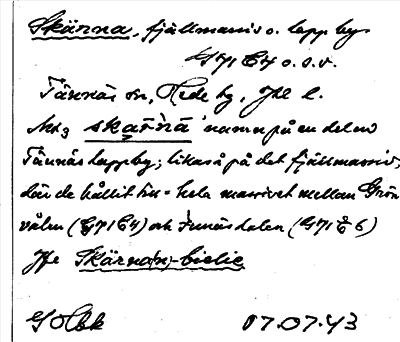 Skärna, fjällmassiv o. lappby
G71 C4 o.s.v.
Tännäs sn, Hede tg, Jtl l.
skar̄nà namn på en del av
Tännäs lappby; likaså på det fjällmassiv,
där de hållit till = hela massivet mellan Grön
vålen (G71 C4) och Funäsdalen (G71 C 6)
Jfe Skärna(n)-bielie
G Hbk 07.07.43